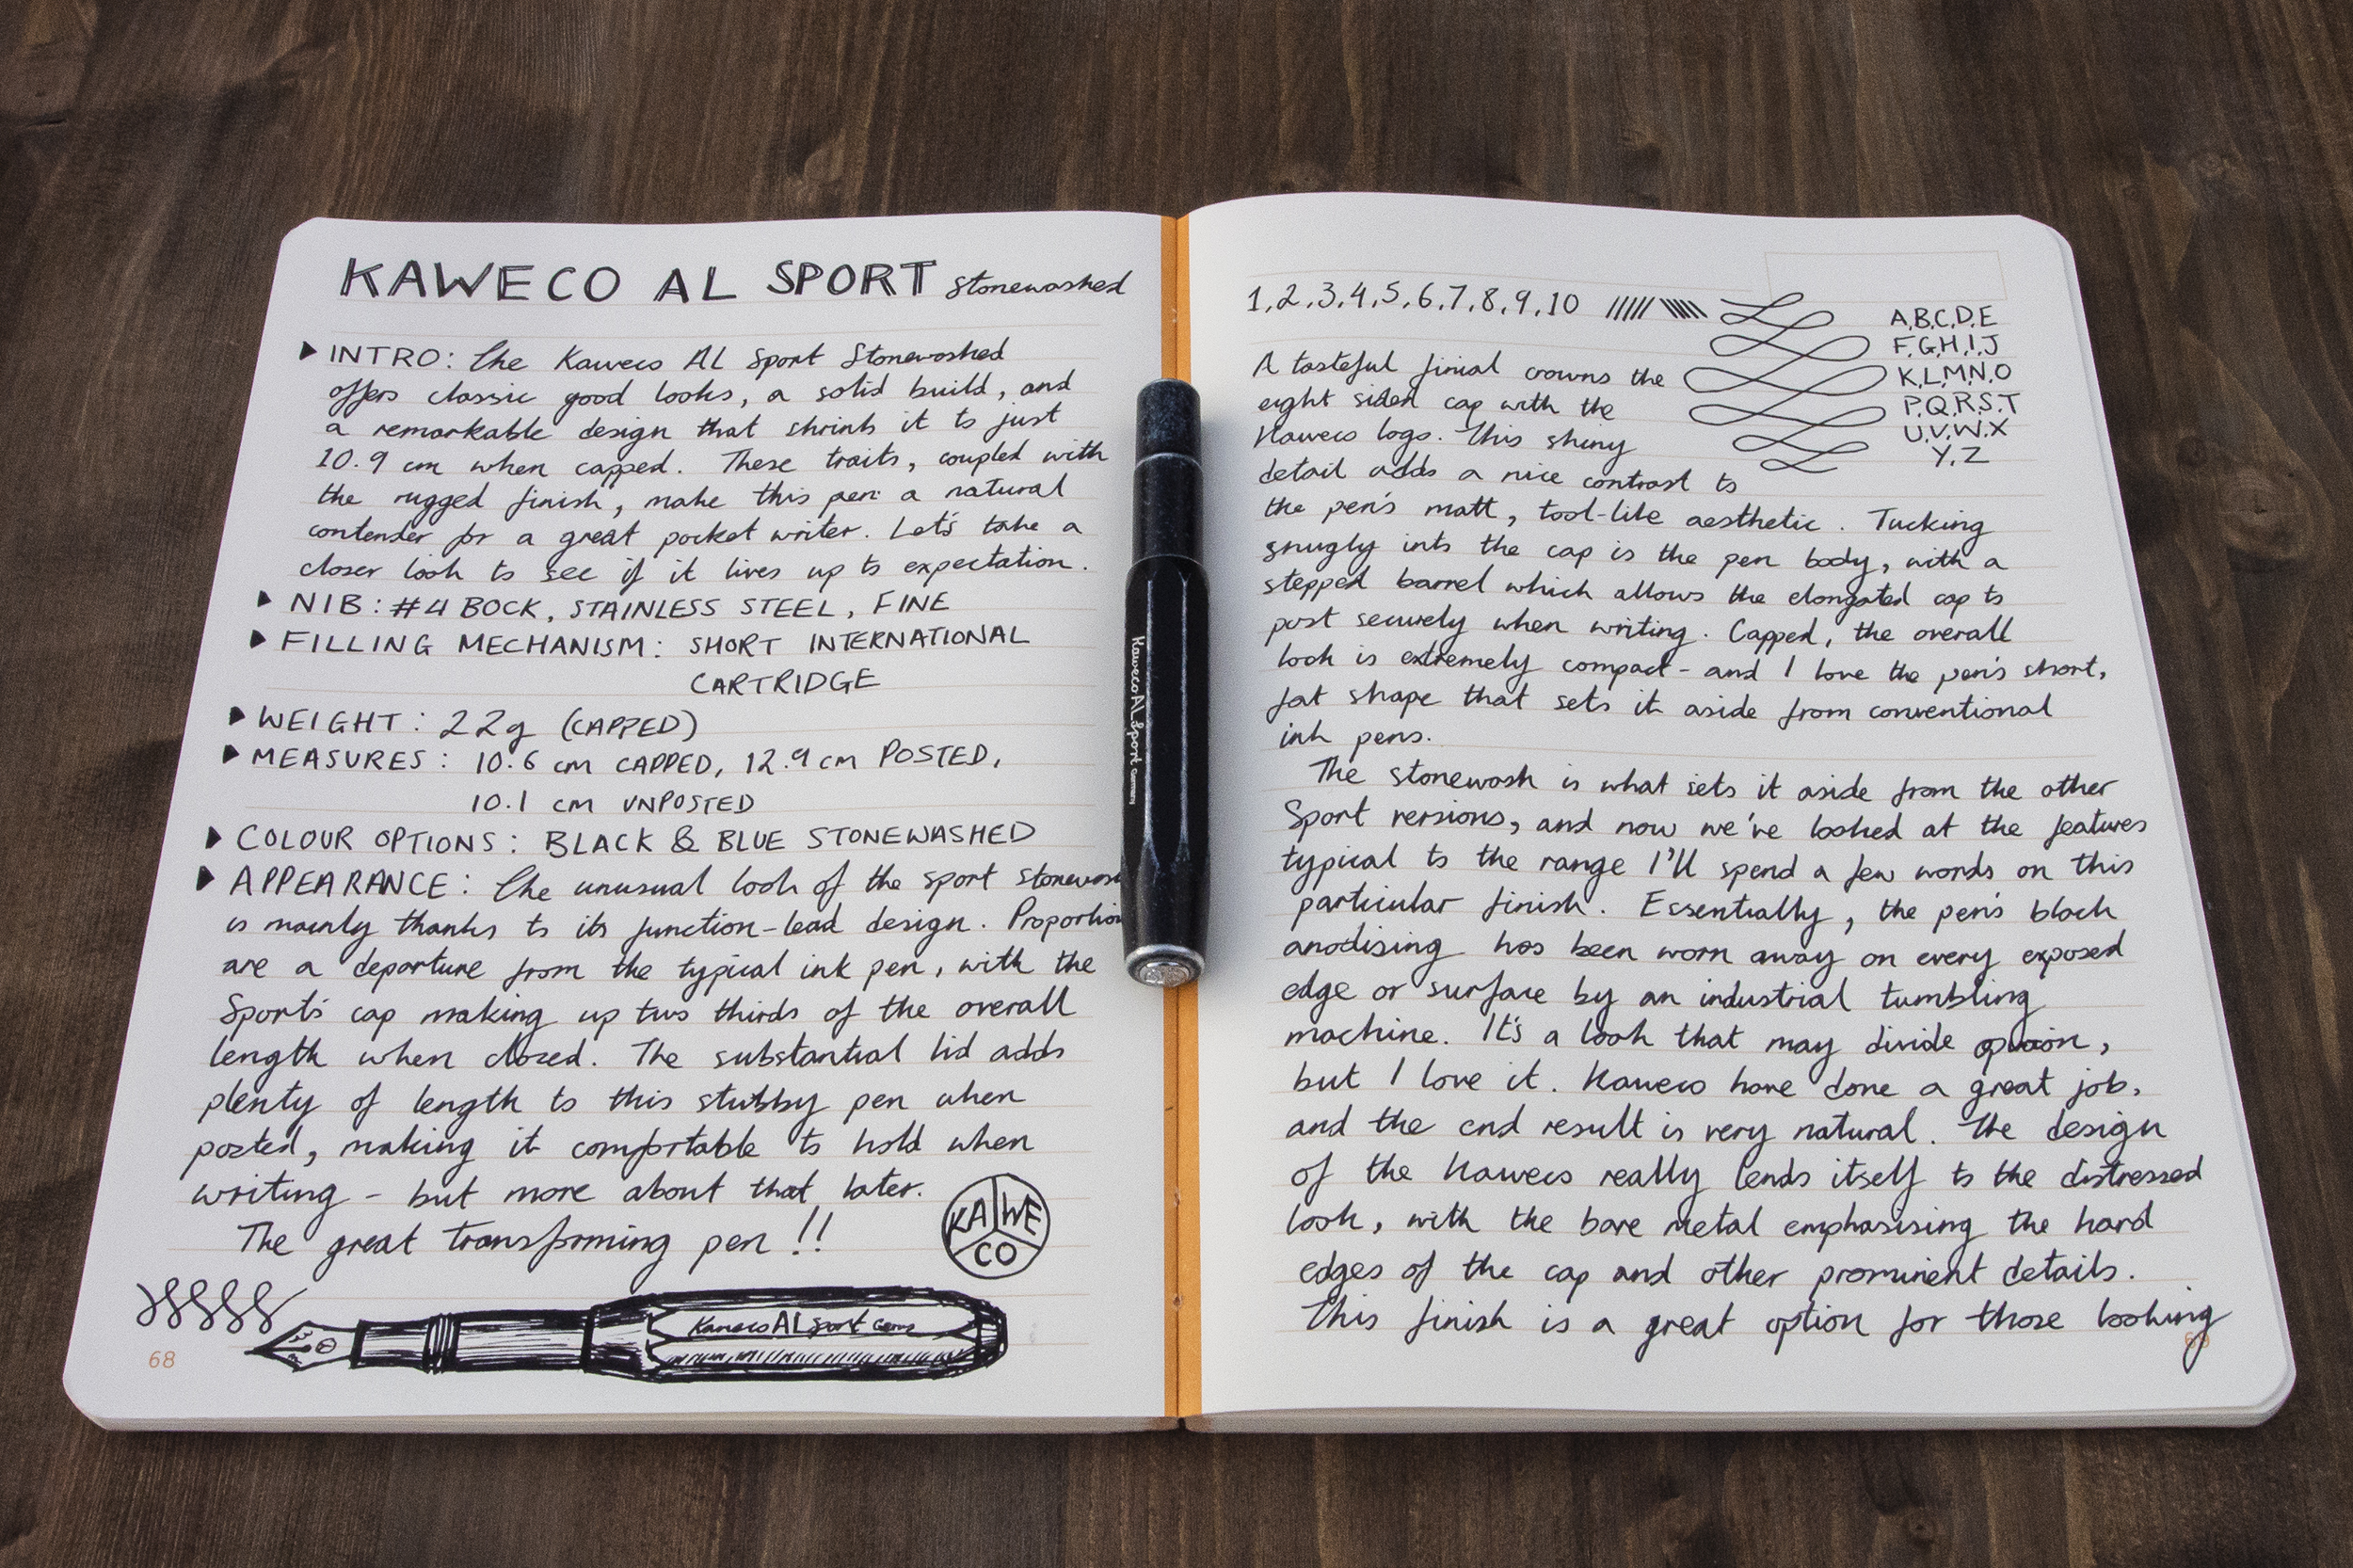 KAWECO AL SPORT stonewashed
INTRO: The Kaweco AL Sport Stonewashed
offers classic good looks, a solid build, and
a remarkable design that shrinks it to just
10.9 cm when capped. These traits, coupled with
the rugged finish, make this pen a natural
contender for a great pocket writer. Let's take a
closer look to see if it lives up to expectation.
NIB: #4 BOCK, STAINLESS STEEL, FINE
FILLING MECHANISM: SHORT INTERNATIONAL
CARTRIDGE
WEIGHT: 22g (CAPPED)
MEASURES: 10.6 cm CAPPED, 12.9 cm POSTED,
10.1 cm UNPOSTED
COLOUR OPTIONS: BLACK & BLUE STONEWASHED
APPEARANCE: The unusual look of the sport stonewash
is mainly thanks to its function-lead design. Proportion
are a departure from the typical ink pen, with the
Sport's cap making up two thirds of the overall
length when closed. The substantial lid adds
plenty of length to this stubby pen when
posted, making it comfortable to hold when
writing - but more about that later.
The great transforming pen!!
KA WE CO
Kaweco AL Sport Germany
68
Kaweco AL Sport Germany
1,2,3,4,5,6,7,8,9,10
A,B,C,D,E
F,G,H,I,J
K,L,M,N,O
P,Q,R,S,T
U,V,W,X
Y,Z
A tasteful finial crowns the
eight sided cap with the
Kaweco logo. This shiny
detail adds a nice contrast to
the pen's matt, tool-like aesthetic. Tucking
snugly into the cap is the pen body, with a
stepped barrel which allows the elongated cap to
post securely when writing. Capped, the overall
look is extremely compact - and I love the pen's short,
fat shape that sets it aside from conventional
ink pens.
The stonewash is what sets it aside from the other
Sport versions, and now we've looked at the features
typical to the range I'll spend a few words on this
particular finish. Essentially, the pen's black
anodising has been worn away on every exposed
edge or surface by an industrial tumbling
machine. It's a look that may divide opinion,
but I love it. Kaweco have done a great job,
and the end result is very natural. The design
of the Kaweco really lends itself to the distressed
look, with the bare metal emphasising the hard
edges of the cap and other prominent details.
This finish is a great option for those looking